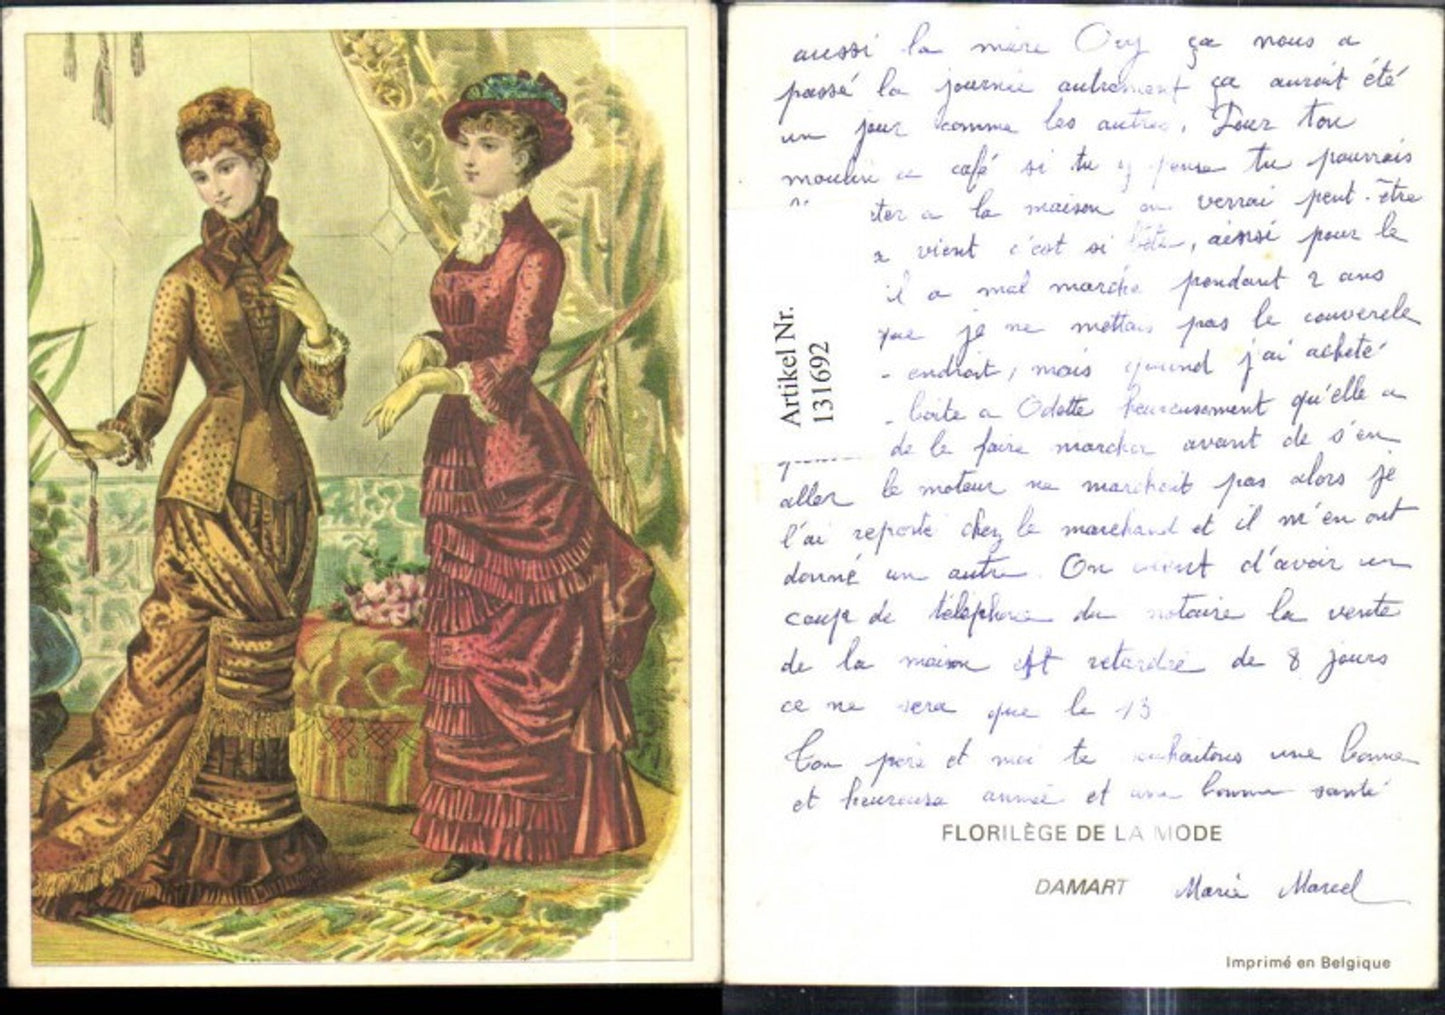 aussi la mère Ory ça nous a
passé la journée autrement ça aurait été
un jour comme les autres. Pour ton
moulin a café si tu y pense tu pourrais
ter a la maison on verrai peut-être
a vient c'est si bête, ainsi pour le
il a mal marché pendant 2 ans
que je ne mettais pas le couvercle
endroit, mais quand j'ai acheté
boite a Odette heureusement qu'elle a
de le faire marcher avant de s'en
aller le moteur ne marchait pas alors je
l'ai reporté chez le marchand et il m'en ont
donné un autre. On vient d'avoir un
coup de téléphone du notaire la vente
de la maison est retardré de 8 jours
ce ne sera que le 13
Ton père et moi te souhaitons une bonne
et heureuse année et une bonne santé
Artikel Nr.
131692
FLORILÈGE DE LA MODE
DAMART Marie Marcel
Imprimé en Belgique